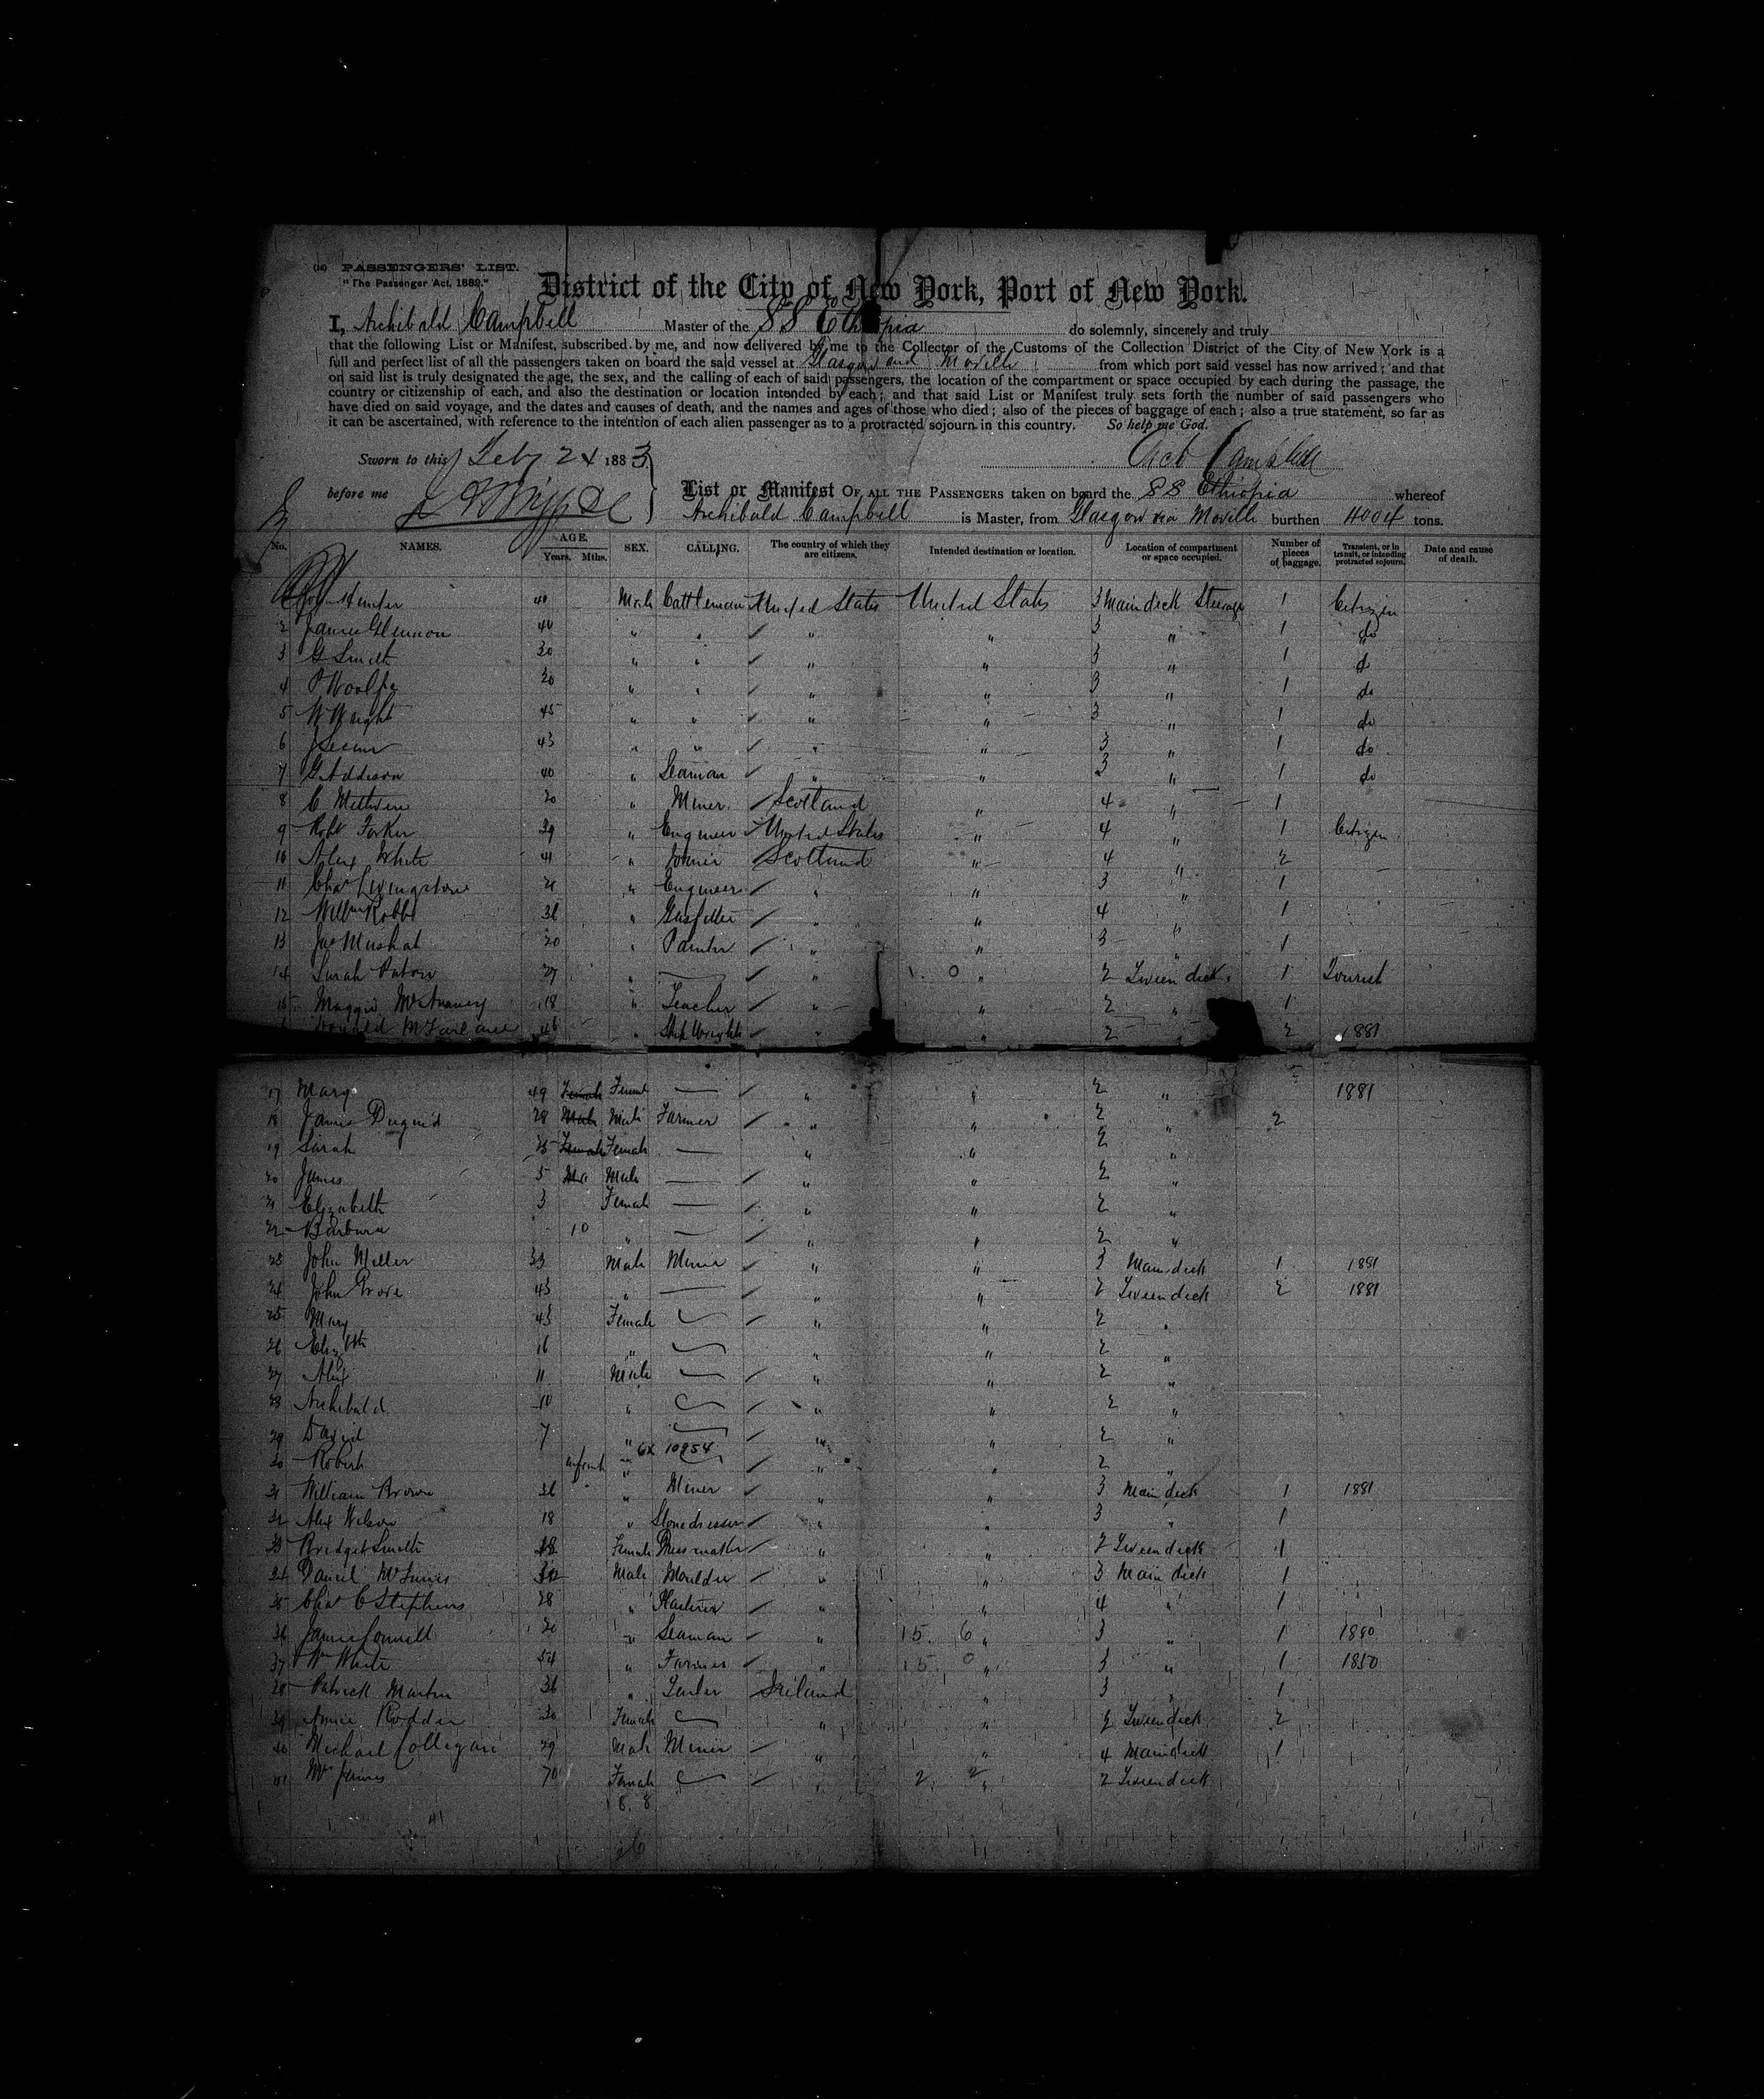 (18) PASSENGERS' LIST.
"The Passenger Act, 1882."
District of the City of New York, Port of New York.
I, Archibald Campbell Master of the SS Ethiopia do solemnly, sincerely and truly
that the following List or Manifest, subscribed by me, and now delivered by me to the Collector of the Customs of the Collection District of the City of New York is a
full and perfect list of all the passengers taken on board the said vessel at Glasgow and Moville from which port said vessel has now arrived; and that
on said list is truly designated the age, the sex, and the calling of each of said passengers, the location of the compartment or space occupied by each during the passage, the
country or citizenship of each, and also the destination or location intended by each; and that said List or Manifest truly sets forth the number of said passengers who
have died on said voyage, and the dates and causes of death, and the names and ages of those who died; also of the pieces of baggage of each; also a true statement, so far as
it can be ascertained, with reference to the intention of each alien passenger as to a protracted sojourn in this country. So help me God.
Sworn to this Feby 24 1883 Arch Campbell
before me
List or Manifest OF ALL THE PASSENGERS taken on board the SS Ethiopia whereof
Archibald Campbell is Master, from Glasgow via Moville burthen 4004 tons.
No. NAMES. AGE. Years. Mths. SEX. CALLING. The country of which they are citizens. Intended destination or location. Location of compartment or space occupied. Number of pieces of baggage. Transient, or in transit, or intending protracted sojourn. Date and cause of death.
Hunter 40 Male Cattleman United States United States 3 Main deck Steerage 1 Citizen
2 James Glennon 40 " " " " 3 " 1 do
3 G Smith 30 " " " " 3 " 1 do
4 30 " " " " 3 " 1 do
5 W Wright 45 " " " " 3 " 1 do
6 43 " " " " 3 " 1 do
7 G Addison 40 " Seaman " " 3 " 1 do
8 C Methven 20 " Miner Scotland " 4 " 1
9 Robt 39 " Engineer United States " 4 " 1 Citizen
10 Alex White 41 " Joiner Scotland " 4 " 2
11 Chas Livingstone 21 " Engineer " " 3 " 1
12 Willm Robb 36 " Gasfitter " " 4 " 1
13 Jas Mushat 20 " Painter " " 3 " 1
14 Sarah Paton 27 " — " " 2 Tween deck 1 Tourist
15 Maggie 18 " Teacher " " 2 " 1
Donald McFarlane 46 " Ship Wright " " 2 " 2 1881
17 Mary 49 Female — " " 2 " 1881
18 James Duguid 28 Male Farmer " " 2 " 2
19 Sarah 25 Female — " " 2 "
20 James 5 Male — " " 2 "
21 Elizabeth 3 Female — " " 2 "
22 Barbara 10 " — " " 2 "
23 John Miller 33 Male Miner " " 3 Main deck 1 1881
24 John 43 " — " " 2 Tween deck 2 1881
25 Mary 43 Female — " " 2 "
26 Elizbth 16 " — " " 2 "
27 Alex 11 Male — " " 2 "
28 Archibald 10 " — " " 2 "
29 David 7 " — " " 2 "
6x 10954
30 Robert infant " — " " 2 "
31 William Brown 36 " Miner " " 3 Main deck 1 1881
32 Alex Wilson 18 " Stonedresser " " 3 " 1
33 Bridget Smith Female Dressmaker " " 2 Tween deck 1
34 Daniel McInnes Male Moulder " " 3 Main deck 1
35 Chas C Stephens 28 " " " 4 " 1
36 James Connell 20 " Seaman " 15. 6 " 3 " 1 1880
37 Wm White 54 " Farmer " 15 0 " 3 " 1 1880
38 Patrick Martin 36 " Ireland " 3 " 1
39 Annie Rodden 30 Female — " " 2 Tween deck 2
40 Michael Colligan 29 Male Miner " " 4 Main deck 1
41 Mrs James 70 Female — " 2 2 " 2 Tween deck
6. 8
41